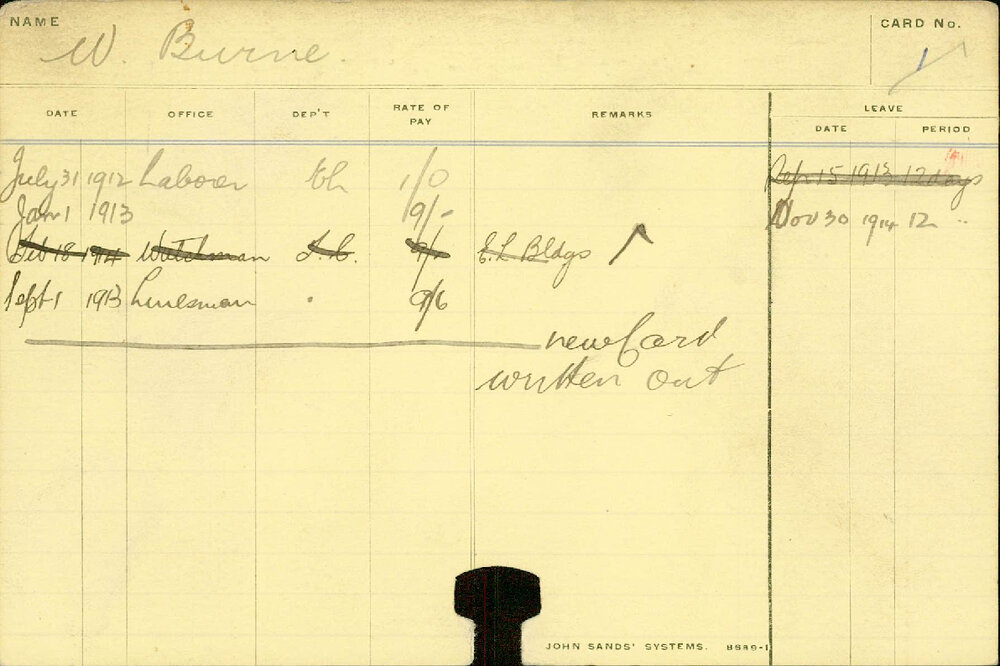 NAME W. Burne. CARD No. 1
LEAVE
DATE OFFICE DEP'T RATE OF PAY REMARKS DATE PERIOD
July 31 1912 Laborer 1/0 Sep 15 1913 12 days
Jan 1 1913 9/- Nov 30 1914 12 "
Feb 18 1914 Watchman 9/- E.L Bldgs
Sept 1 1913 Linesman 9/6
new Card
written out
JOHN SANDS' SYSTEMS. 8689-1